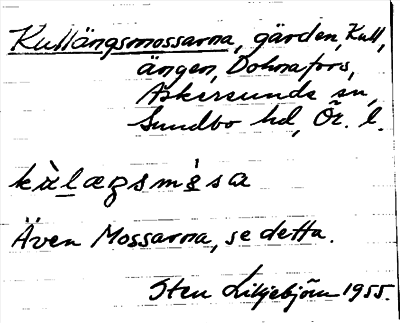 Kullängsmossarna, gärden, Kull,
ängen, Dohnafors,
Askersunds sn,
Sundbo hd, Ör. l.
Även Mossarna, se detta.
Sten Liljebjörn 1955.